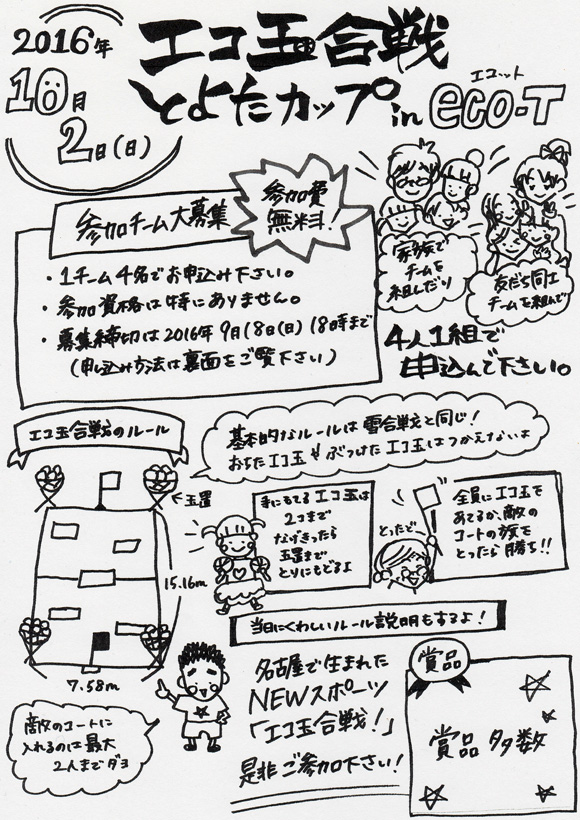 2016年
10月
2日(日)
エコ玉合戦
とよたカップ in eco-T
エコット
参加チーム大募集
参加費
無料!
・1チーム4名でお申込み下さい。
・参加資格は特にありません。
・募集締切は2016年9月18日(日)18時まで
(申し込み方法は裏面をご覧下さい)
家族で
チームを
組んだり
友だち同士
チームを組んで
4人1組で
申込んで下さい。
エコ玉合戦のルール
基本的なルールは雪合戦と同じ!
おちたエコ玉やぶつけたエコ玉はつかえないよ
←玉置
15.16m
7.58m
手にもてるエコ玉は
2コまで
なげきったら
玉置まで
とりにもどるよ
とったで
全員にエコ玉を
あてるか、敵の
コートの旗を
とったら勝ち!!
当日にくわしいルール説明もするよ!
敵のコートに
入れるのは最大
2人までダヨ
名古屋で生まれた
NEWスポーツ
「エコ玉合戦!」
是非ご参加下さい!
賞品
賞品多数